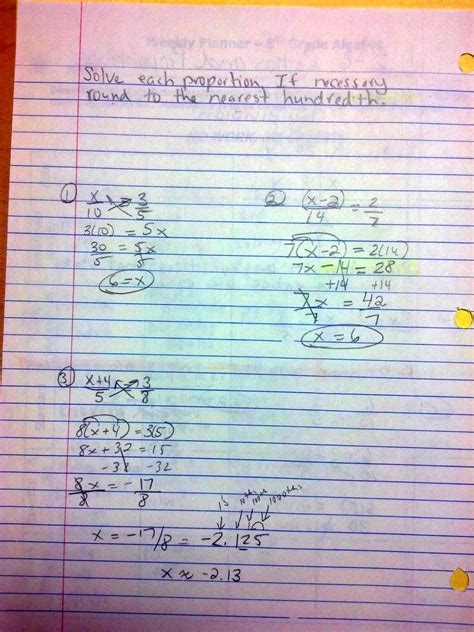 Weekly Planner – 8th Grade Algebra
Solve each proportion. If necessary
round to the nearest hundredth.
① x/10 = 3/5
3(10) = 5x
30/5 = 5x/5
6 = x
② (x-2)/14 = 2/7
7(x-2) = 2(14)
7x - 14 = 28
+14 +14
7x/7 = 42/7
x = 6
③ x+4/5 = 3/8
8(x+4) = 3(5)
8x + 32 = 15
-32 -32
8x/8 = -17/8
1s 10ths 100ths 1000ths
x = -17/8 = -2.125
x ≈ -2.13